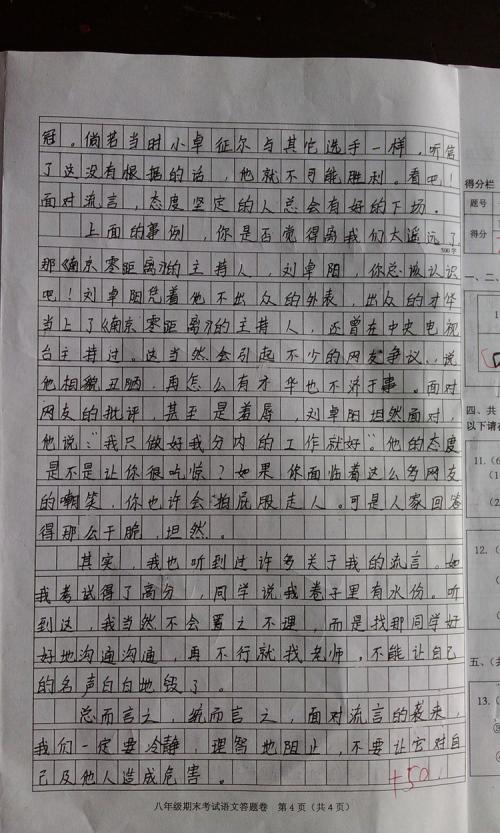 冠。倘若当时小卓征尔与其它选手一样，听信
了这没有根据的话，他就不可能胜利。看吧！
面对流言，态度坚定的人总会有好的下场。
上面的事例，你是否觉得离我们太遥远了，
500字
那《南京零距离》的主持人，刘卓阳，你总该认识
吧！刘卓阳凭着他不出众的外表，出众的才华
当上了《南京零距离》的主持人，还曾在中央电视
台主持过。这当然会引起不少的网友争议，说
他相貌丑陋，再怎么有才华也不济于事。面对
网友的批评，甚至是羞辱，刘卓阳坦然面对，
他说："我只做好我分内的工作就好"。他的态度
是不是让你很吃惊？如果你面临着这么多网友
的嘲笑，你也许会拍屁股走人。可是人家回答
得那么干脆，坦然。
其实，我也听到过许多关于我的流言。如
我考试得了高分，同学说我卷子里有水份。听
到这，我当然不会置之不理，而是找那同学好
好地沟通沟通，再不行就找老师。不能让自己
的名声白白地毁了。
总而言之，统而言之，面对流言的袭来，
我们一定要冷静，理智地阻止，不要让它对自
己及他人造成危害。
+50
八年级期末考试语文答题卷 第4页（共4页）
得分栏
题号
得分
一、二、
1
四、共
以下请在
11.（6
（1
（2
12.（
五、（共
13.（